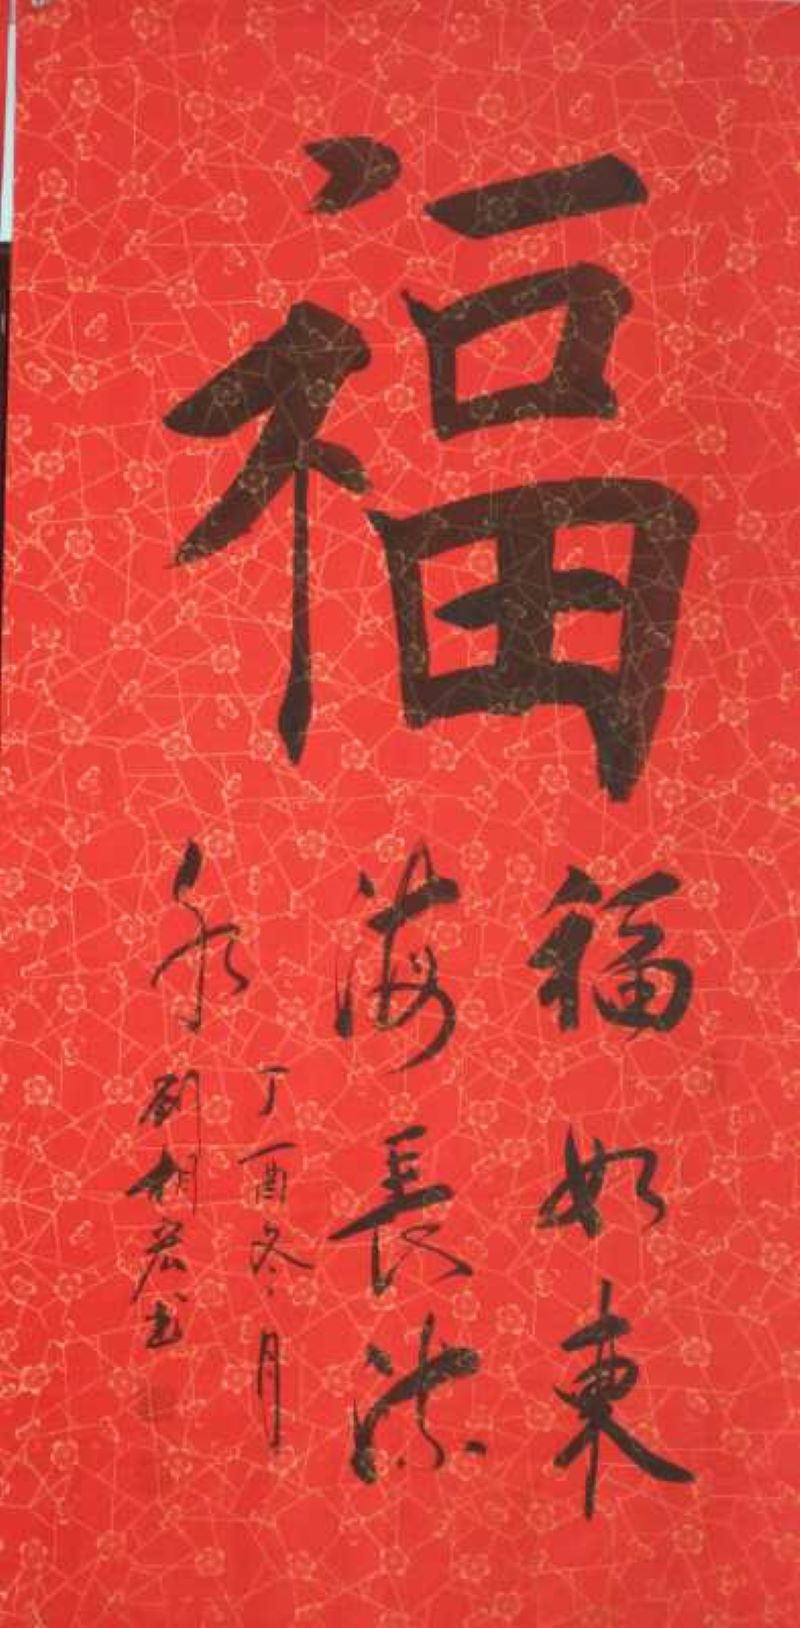 福
福如東
海長流
水
丁酉冬月
劉相宏书